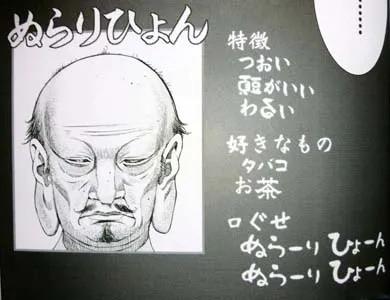 ………
ぬらりひょん
特徴
つおい
頭がいい
わるい
好きなもの
タバコ
お茶
口ぐせ
ぬらーりひょーん
ぬらーりひょーん